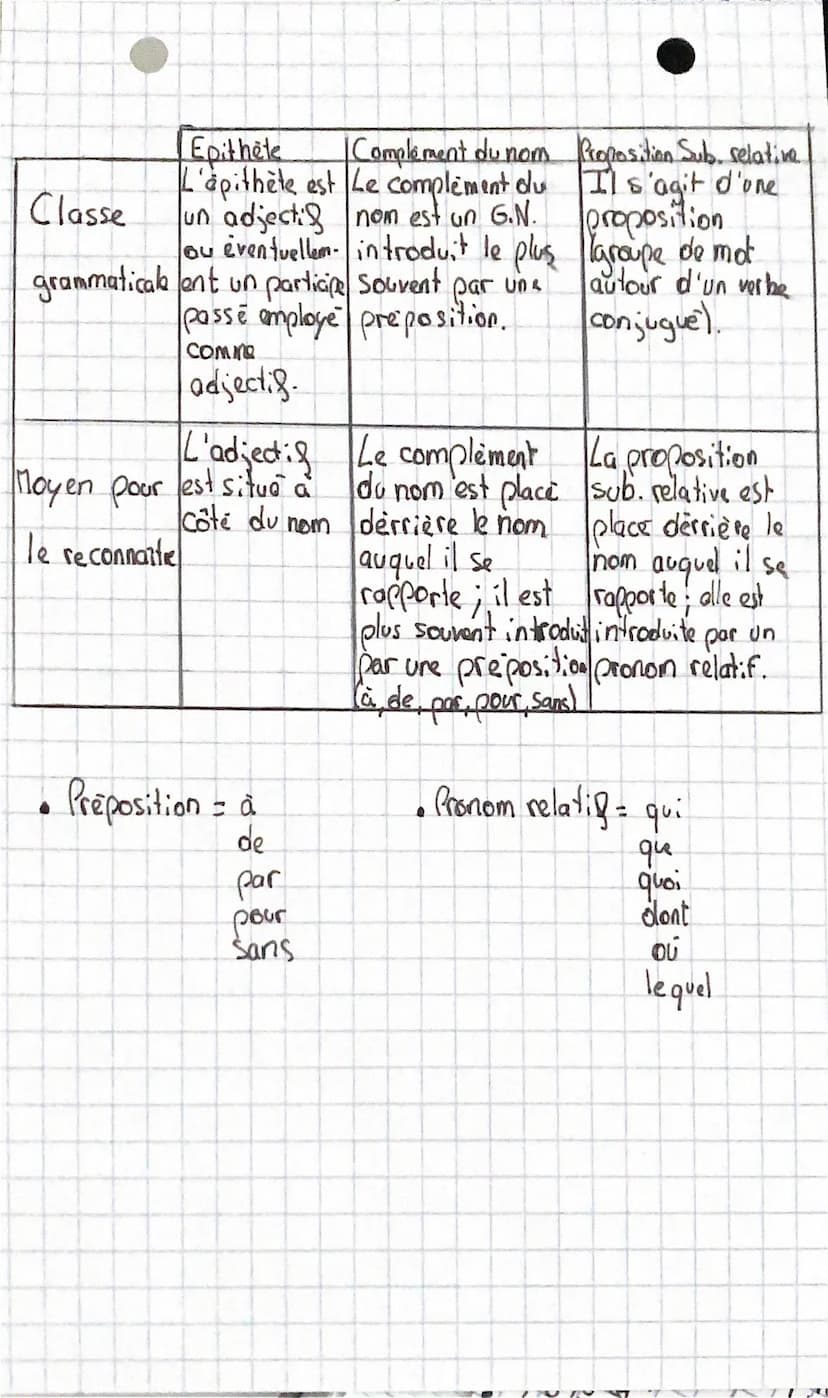 Epithète
Complément du nom
Proposition Sub. relative
Classe
grammaticale
L'épithète est
un adjectif
ou éventuellem-
ent un participe
passé employé
comme
adjectif.
Le complèment du
nom est un G.N.
introduit le plus
souvent par une
préposition.
Il s'agit d'une
proposition
(groupe de mot
autour d'un verbe
conjugué).
Moyen pour
le reconnaitre
L'adjectif
est situé à
côté du nom
Le complèment
du nom est placé
dérrière le nom
auquel il se
rapporte ; il est
plus souvent introduit
par une préposition
(à, de, par, pour, sans)
La proposition
sub. relative est
place dérrière le
nom auquel il se
rapporte ; elle est
introduite par un
pronom relatif.
• Préposition = à
de
par
pour
sans
• Pronom relatif = qui
que
quoi
dont
où
lequel